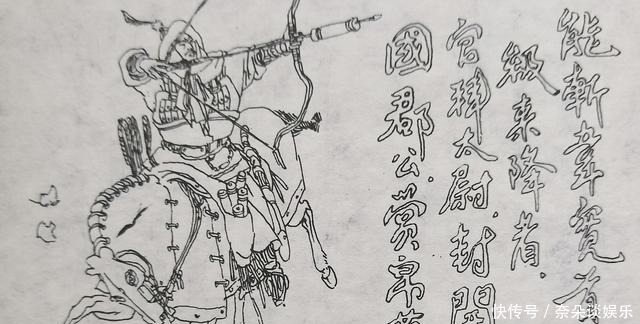 能斬韋寬首
級来降者，
官拜太尉，封開
國郡公，賞帛
快传号 / 奈朵谈娱乐